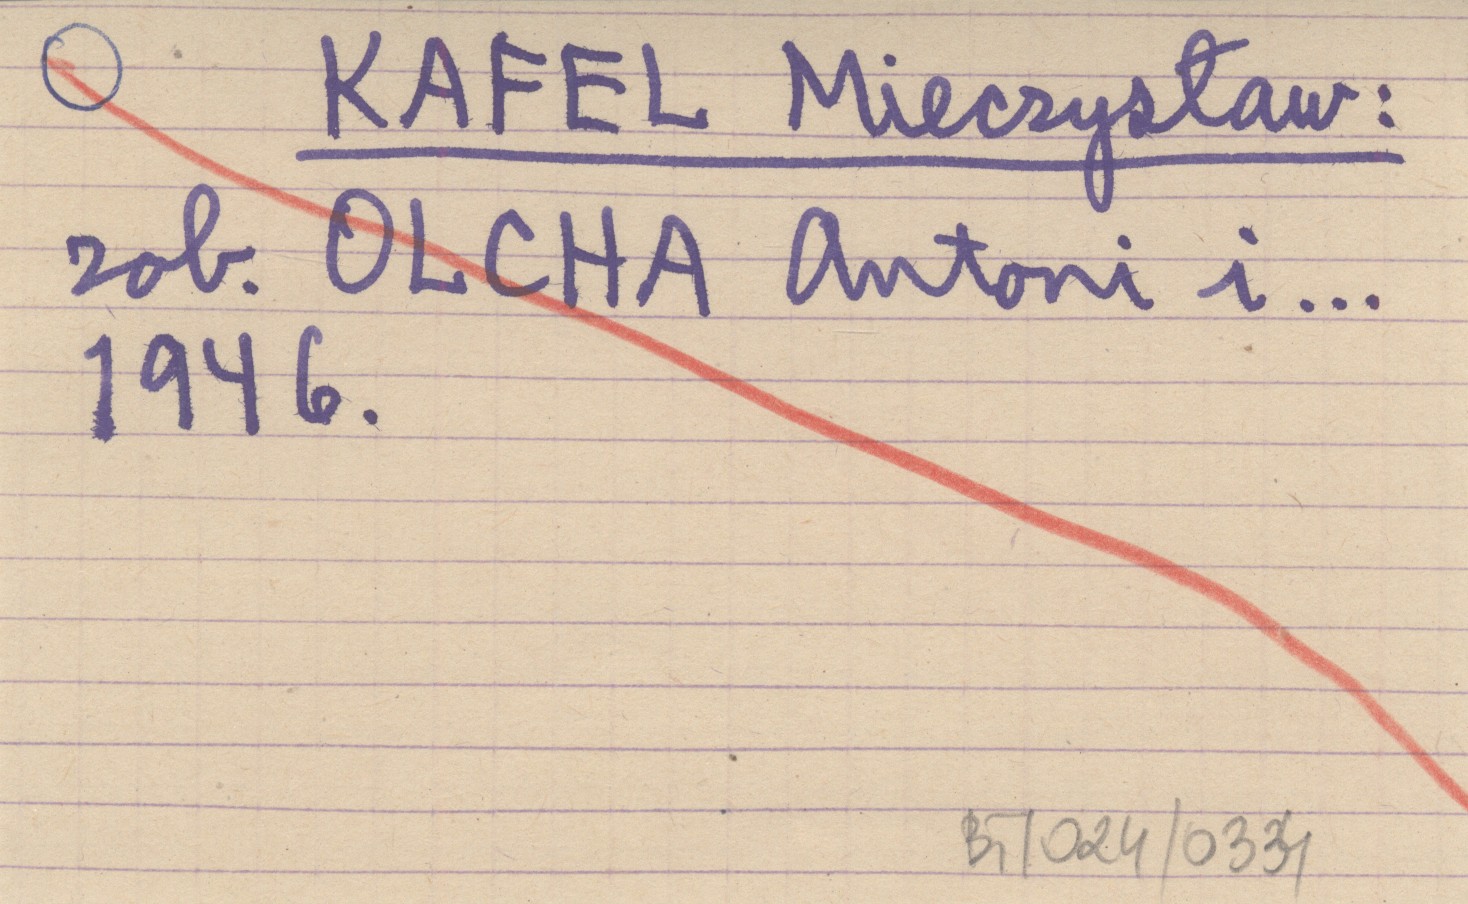 KAFEL Mieczysław:
zob. OLCHA Antoni i...
1946.